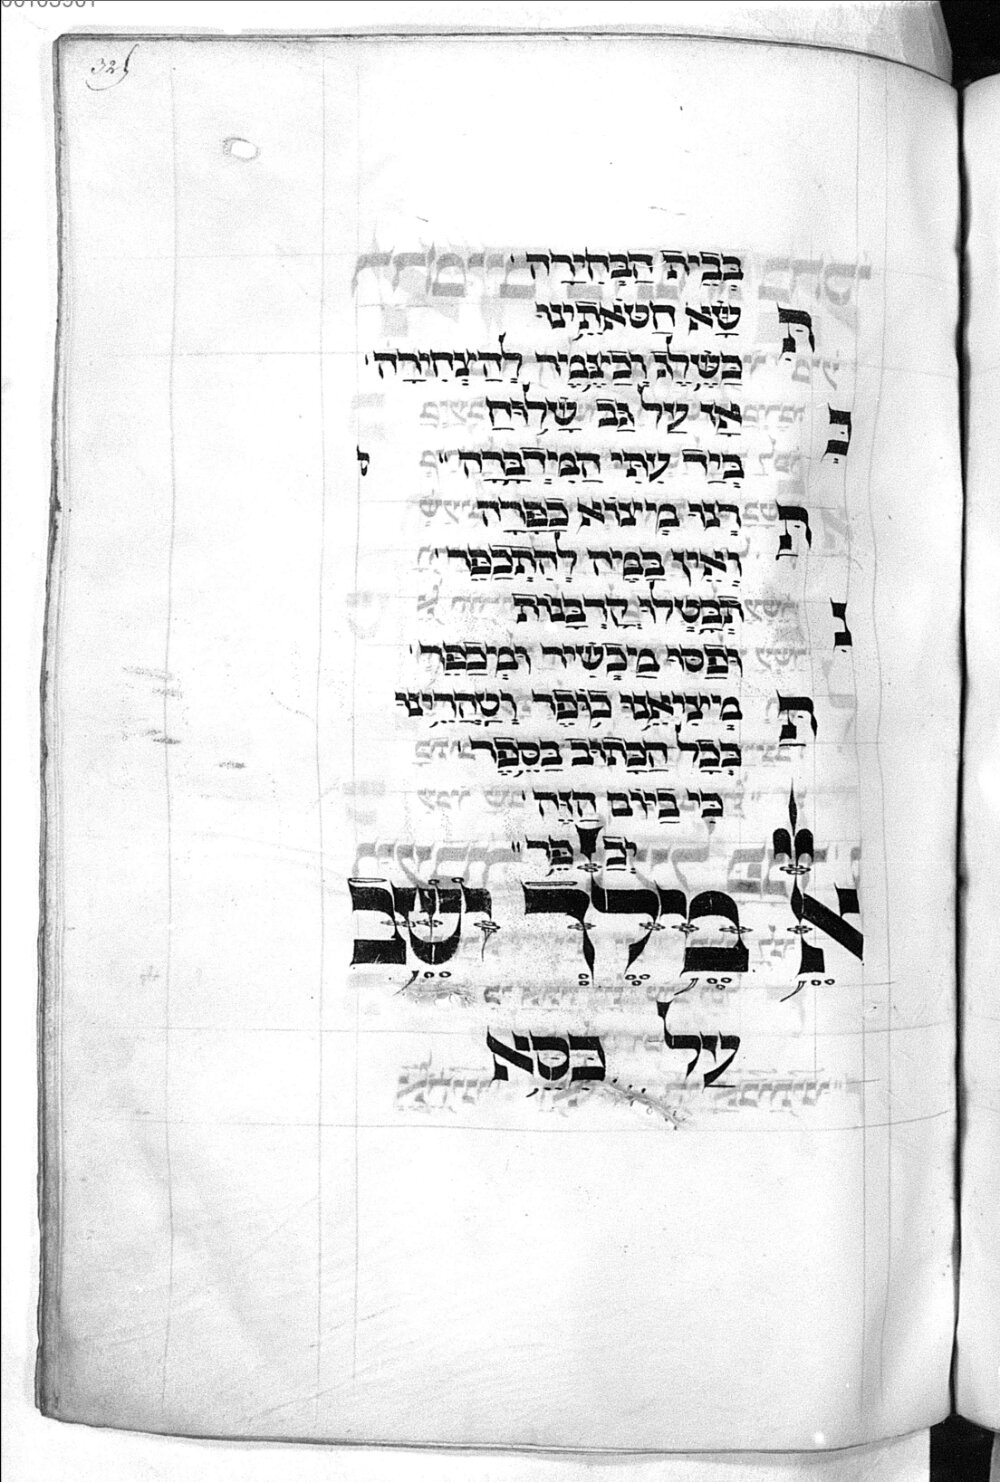 בְּבֵית הַבְּחִירָה
תִּשָּׂא חַטֹּאתֵינוּ
כַּשֶּׁלֶג וְכַצֶּמֶר לְהַצְחִירָה
אָז עַל גַּב שָׁלוּחַ
בְּיַד עִתִּי הַמִּדְבָּרָה
מְצוֹא כַפָּרָה
וְאֵין בַּמֶּה לְהִתְכַּפֵּר
נִתְבַּטְּלוּ קָרְבָּנוֹת
וּפַסּוּ מַכְשִׁיר וּמְכַפֵּר
כּוֹפֶר וְטַהֲרֵינוּ
כְּכָל הַכָּתוּב בַּסֵּפֶר
כִּי בַיּוֹם הַזֶּה
יְכַפֵּר
אֵל מֶלֶךְ יֹשֵׁב
עַל כִּסֵּא